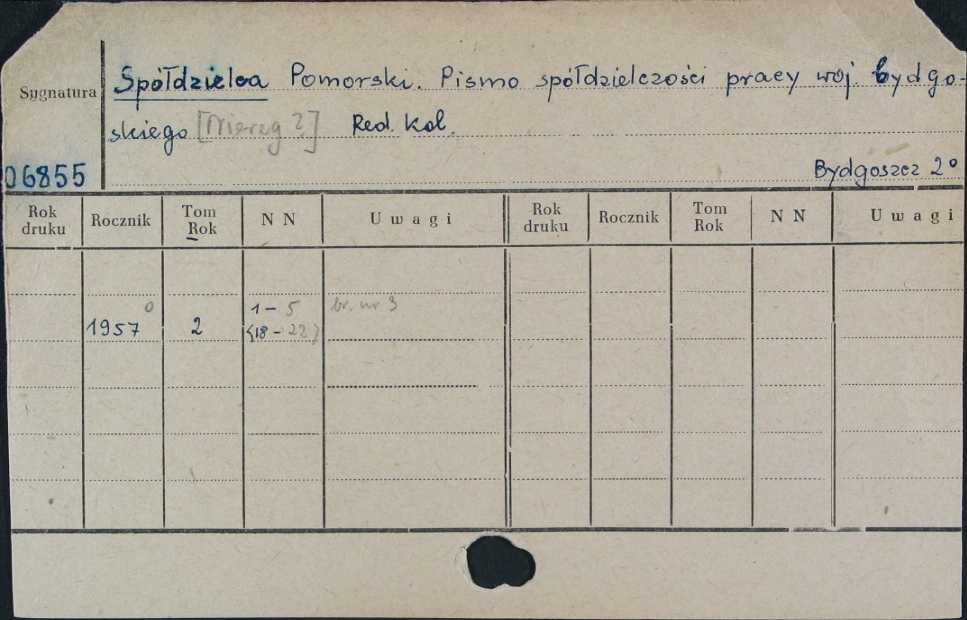 Sygnatura
Spółdzielca Pomorski. Pismo spółdzielczości pracy woj. bydgo-
skiego [Niereg?] Red. Kol.
06855
Bydgoszcz 2°
Rok druku Rocznik Tom Rok NN Uwagi Rok druku Rocznik Tom Rok NN Uwagi
0 1-5 br. nr 3
1957 2 {18-22}